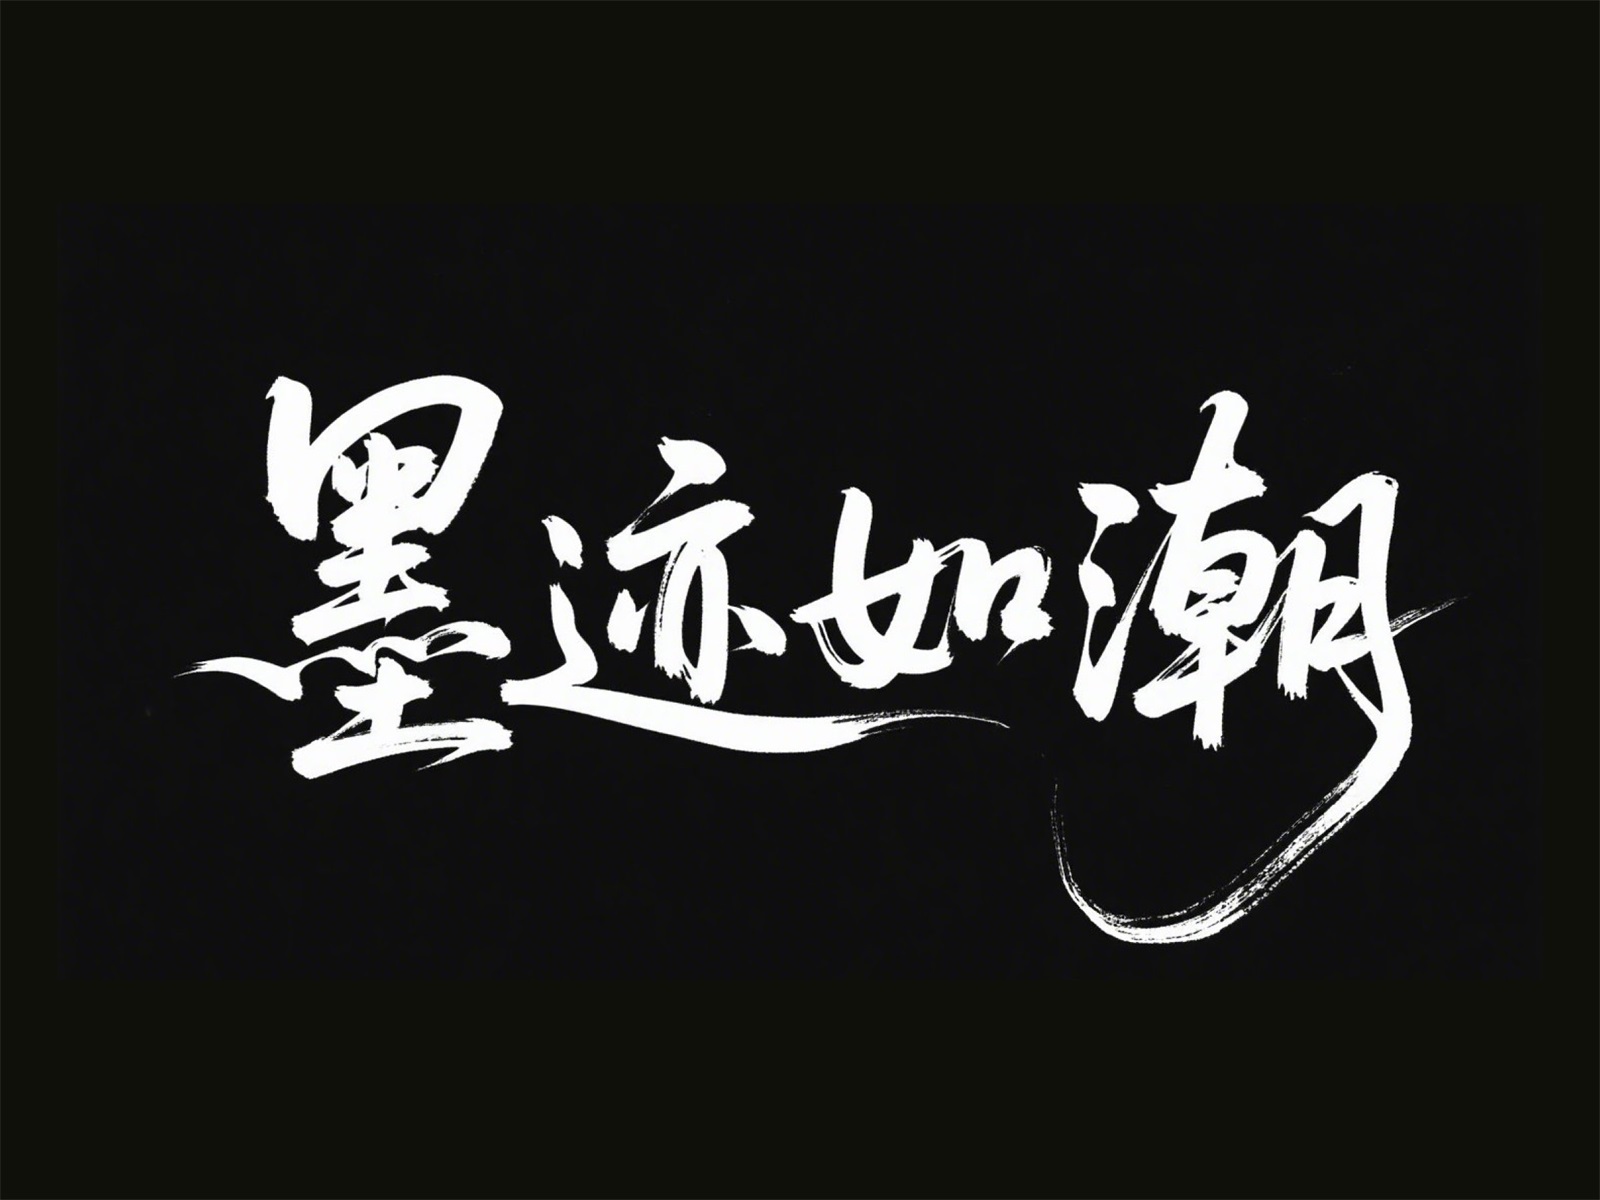 墨迹如潮